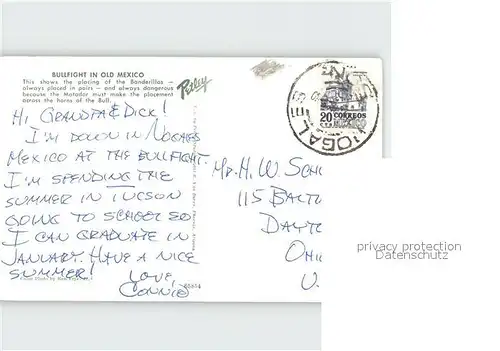 BULLFIGHT IN OLD MEXICO
This shows the placing of the Banderillas —
always placed in pairs — and always dangerous
because the Matador must make the placement
across the horns of the Bull.
Petley
HI GRANDPA & DICK!
I'M DOWN IN NOGALES
MEXICO AT THE BULLFIGHT.
I'M SPENDING THE
SUMMER IN TUCSON
GOING TO SCHOOL SO
I CAN GRADUATE IN
JANUARY. HAVE A NICE
SUMMER! LOVE,
CONNIE
20 CORREOS
NOGALES
MR. H. W. SCH
115 BALT
DAYT
OHI
U.
privacy protection
Datenschutz